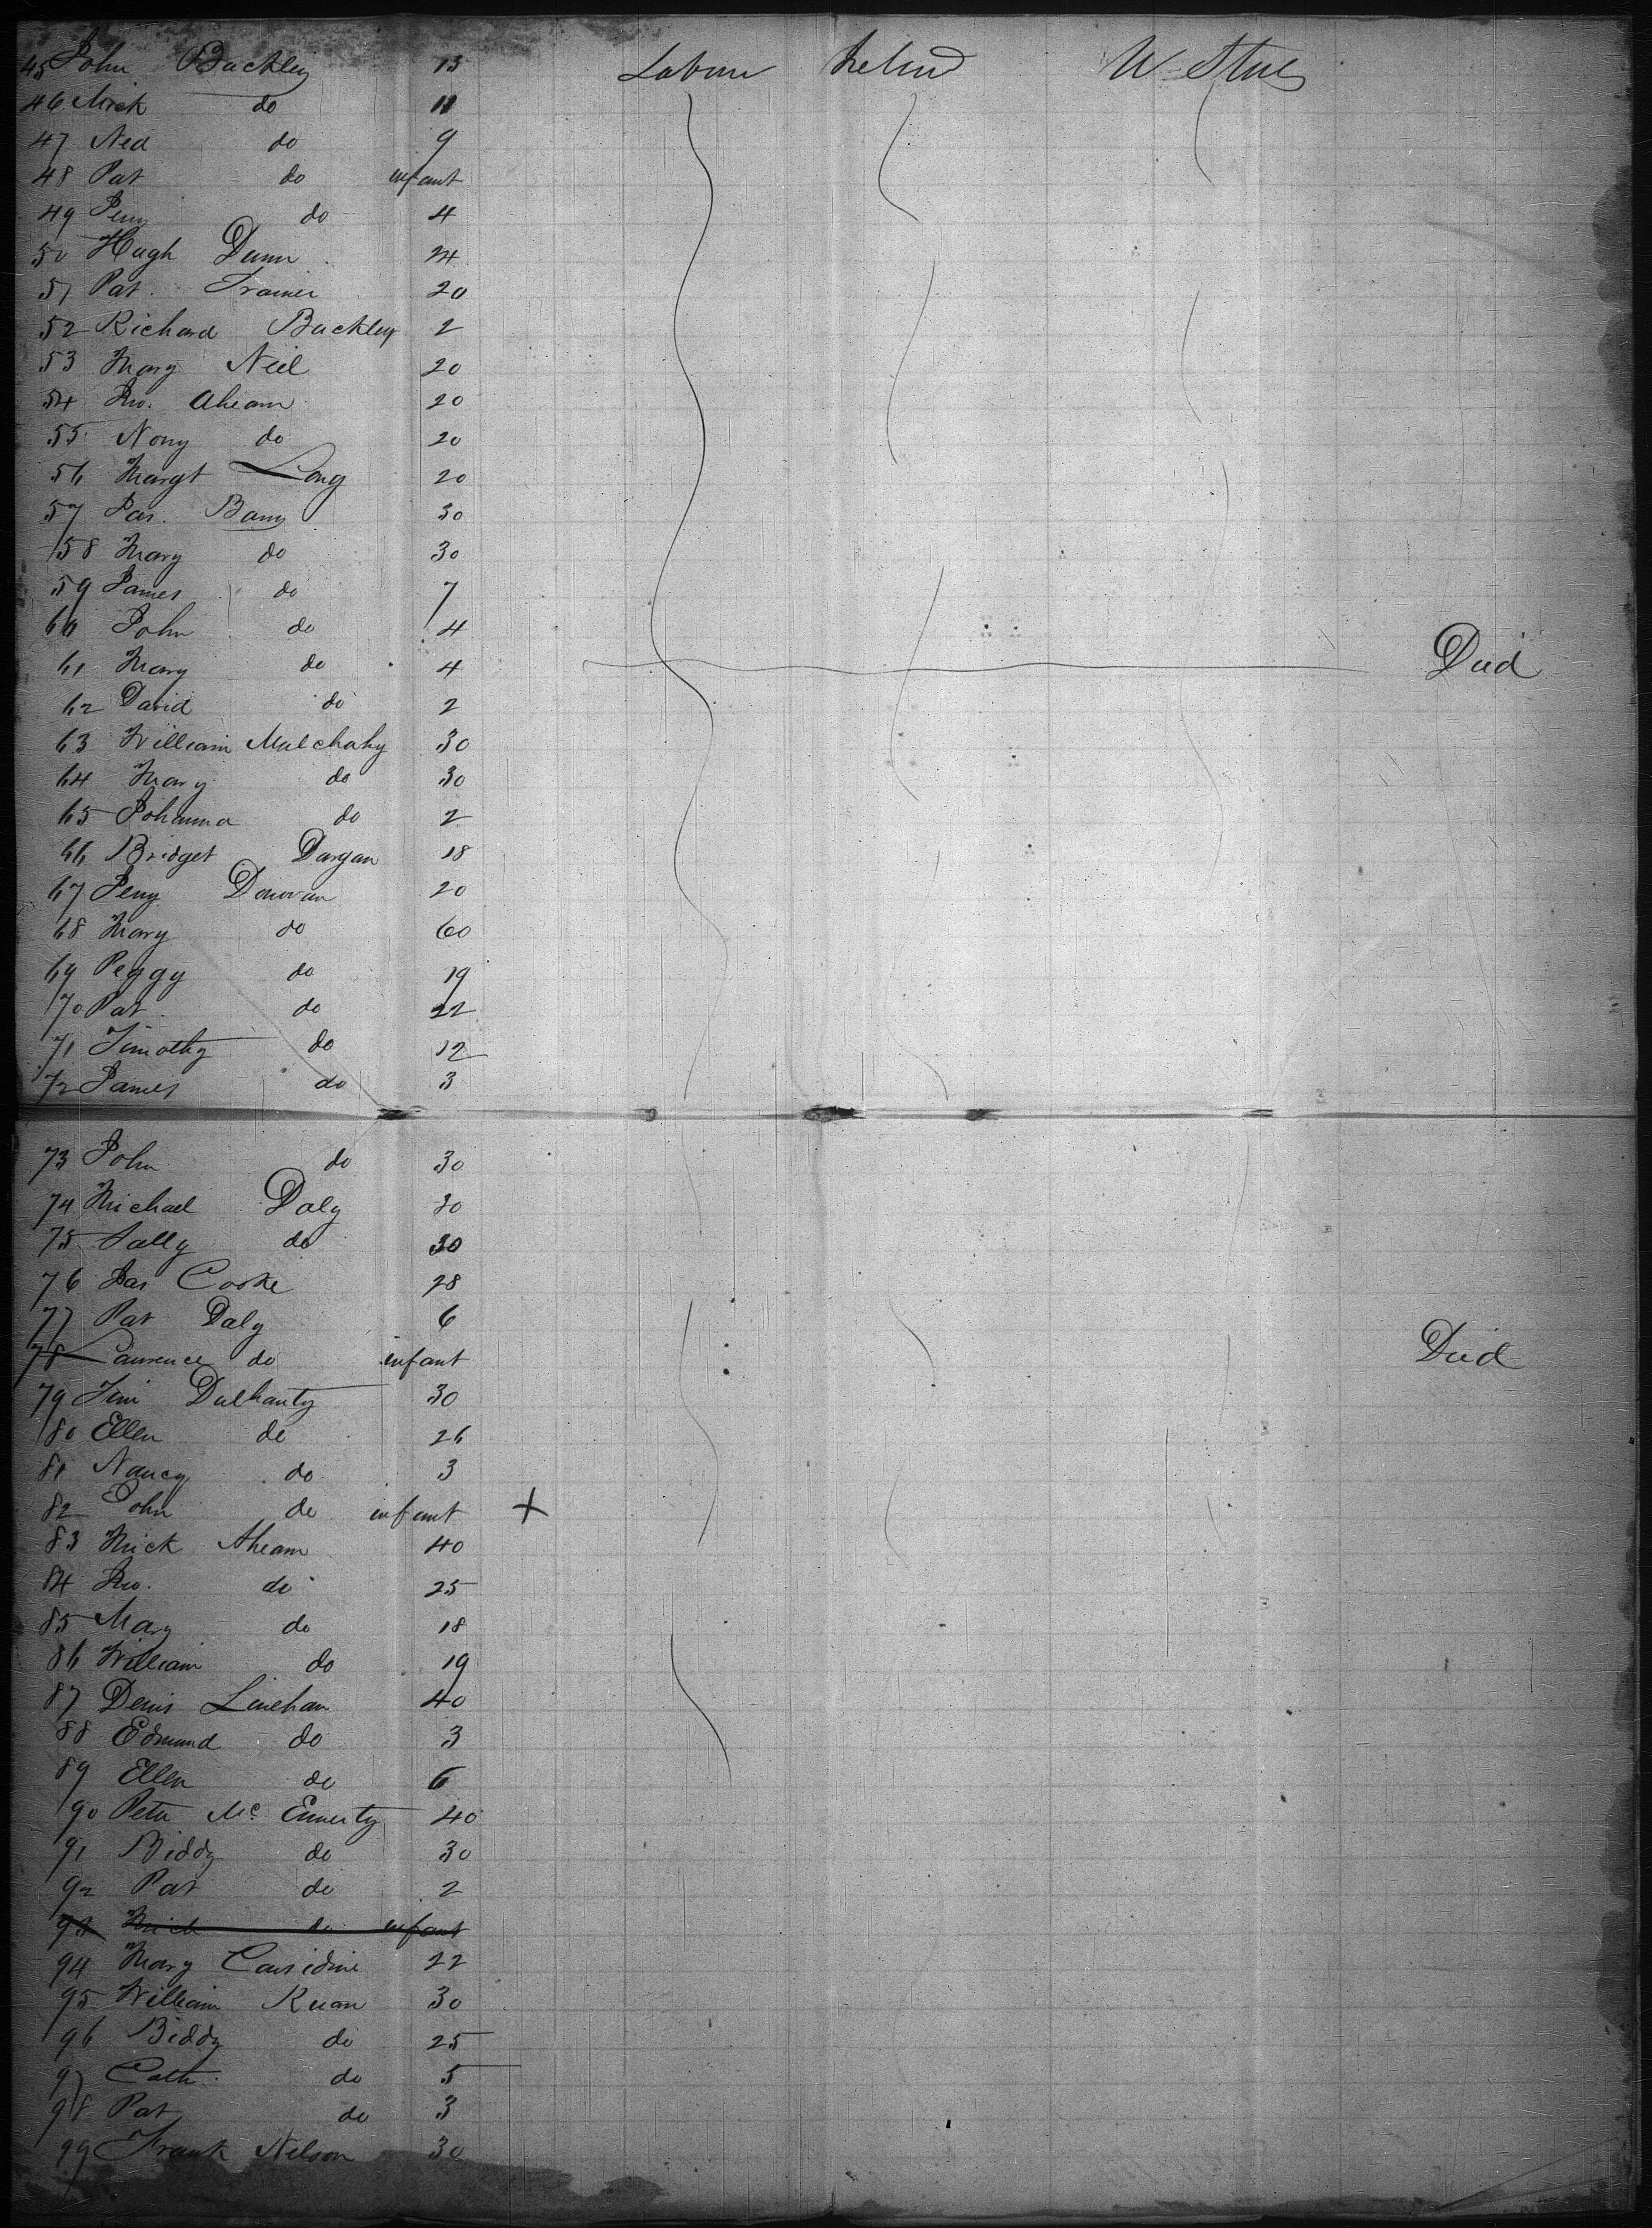 45 John Buckley 13 Labour Ireland U States
46 Mick do 11
47 Ned do 9
48 Pat do infant
49 Jerry do 4
50 Hugh Dunn 24
51 Pat. Trainer 20
52 Richard Buckley 2
53 Mary Neil 20
54 Jno. Ahearn 20
55 Nony do 20
56 Margt Long 20
57 Jas. Barry 30
58 Mary do 30
59 James do 7
60 John do 4
61 Mary do 4 Died
62 David do 2
63 William Mulchahy 30
64 Mary do 30
65 Johanna do 2
66 Bridget Dargan 18
67 Jerry Donovan 20
68 Mary do 60
69 Peggy do 19
70 Pat do 22
71 Timothy do 12
72 James do 3
73 John do 30
74 Michael Daly 30
75 Sally do 30
76 Jas Cooke 28
77 Pat Daly 6
78 Laurence do infant Died
79 Tim Dulhanty 30
80 Ellen do 26
81 Nancy do 3
82 John do infant +
83 Mick Ahearn 40
84 Jno. do 25
85 Mary do 18
86 William do 19
87 Denis Linehan 40
88 Edmund do 3
89 Ellen do 6
90 Peter Mc Ennerty 40
91 Biddy do 30
92 Pat do 2
93 Mick do infant
94 Mary Considine 22
95 William Ruan 30
96 Biddy do 25
97 Cath. do 5
98 Pat do 3
99 Frank Nelson 30